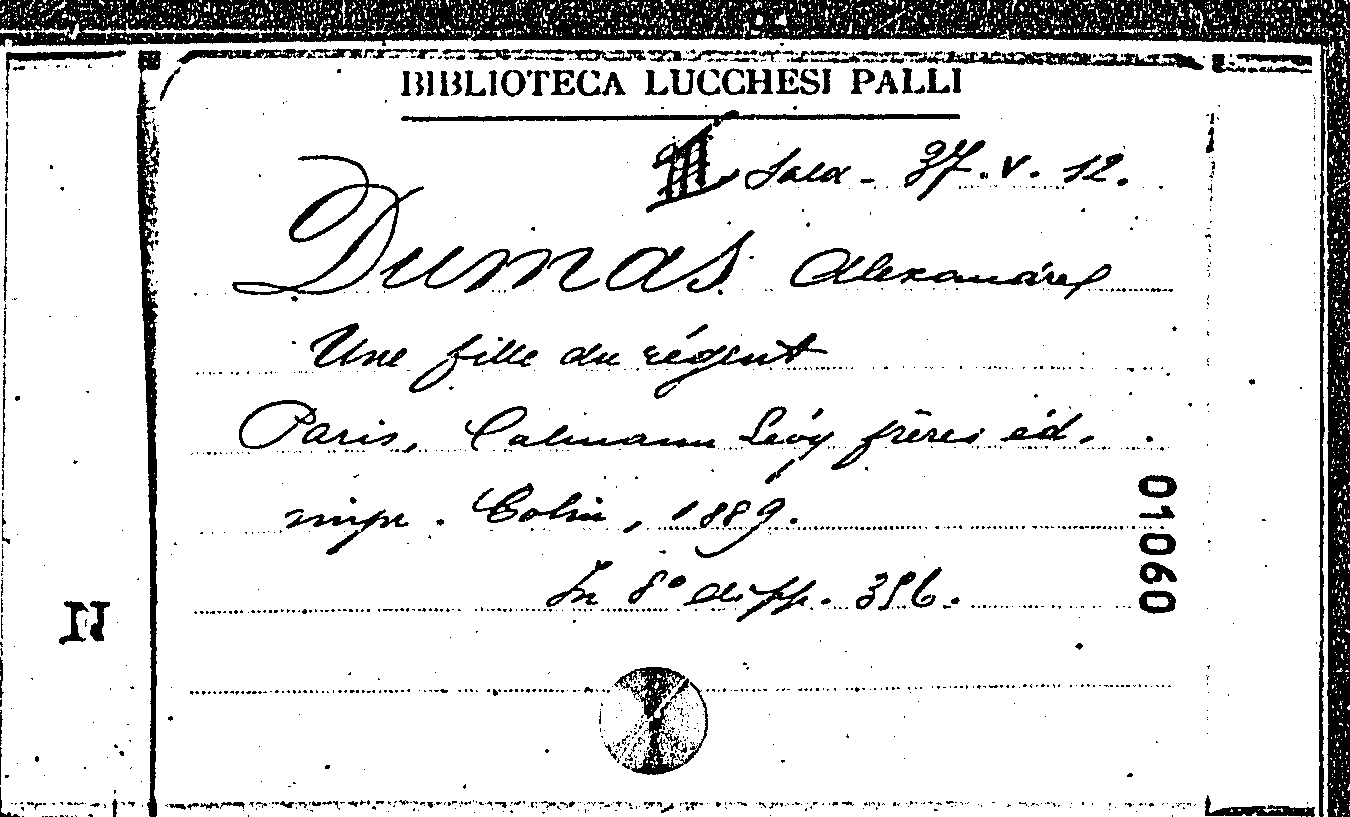 BIBLIOTECA LUCCHESI PALLI
Sala - 37. V. 12.
Dumas Alexandre
Une fille du régent
Paris, Calmann Lévy frères éd.
impr. Colin, 1889.
In 8° di pp. 316.
01060